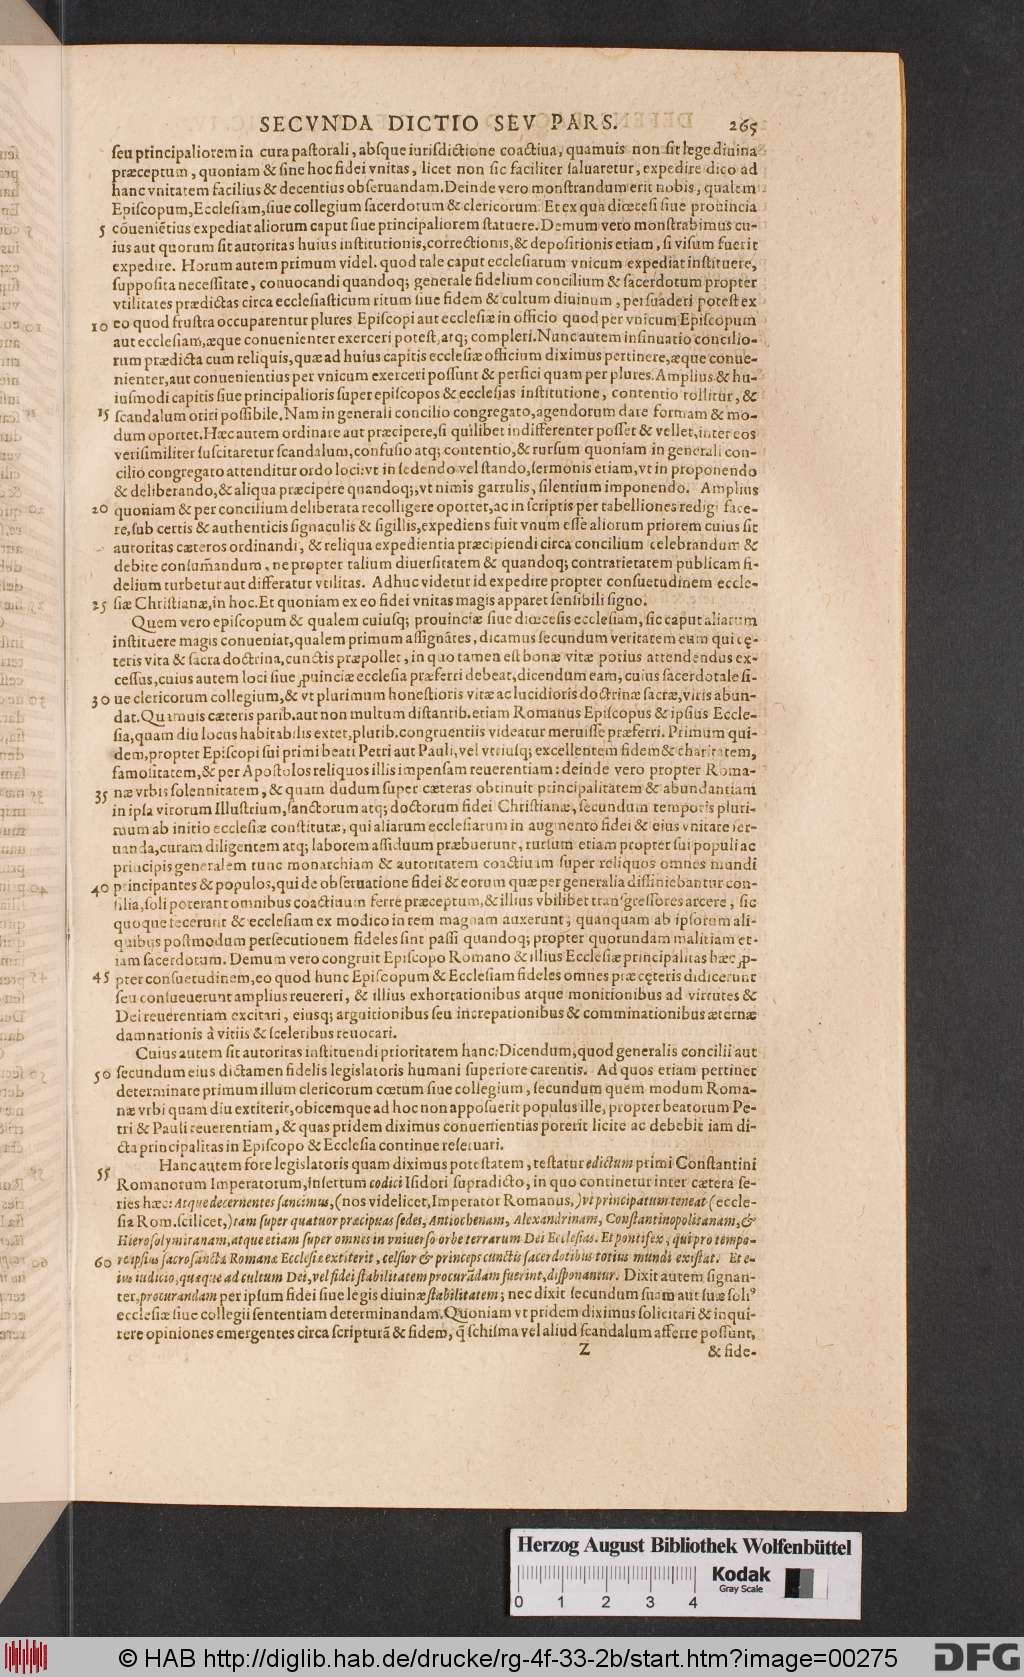 SECVNDA DICTIO SEV PARS. 265
ſeu principaliorem in cura paſtorali, abſque iuriſdictione coactiua, quamuis non ſit lege diuina
præceptum, quoniam & ſine hoc fidei vnitas, licet non ſic faciliter ſaluaretur, expedire dico ad
hanc vnitatem facilius & decentius obſeruandam. Deinde vero monſtrandum erit nobis, qualem
Epiſcopum, Eccleſiam, ſiue collegium ſacerdotum & clericorum. Et ex qua diœceſi ſiue prouincia
5 cōueniētius expediat aliorum caput ſiue principaliorem ſtatuere. Demum vero monſtrabimus cu-
ius aut quorum ſit autoritas huius inſtitutionis, correctionis, & depoſitionis etiam, ſi viſum fuerit
expedire. Horum autem primum videl. quod tale caput eccleſiarum vnicum expediat inſtituere,
ſuppoſita neceſſitate, conuocandi quandoq; generale fidelium concilium & ſacerdotum propter
vtilitates prædictas circa eccleſiaſticum ritum ſiue fidem & cultum diuinum, perſuaderi poteſt ex
10 eo quod fruſtra occuparentur plures Epiſcopi aut eccleſiæ in officio quod per vnicum Epiſcopum
aut eccleſiam, æque conuenienter exerceri poteſt, atq; compleri. Nunc autem inſinuatio concilio-
rum prædicta cum reliquis, quæ ad huius capitis eccleſiæ officium diximus pertinere, æque conue-
nienter, aut conuenientius per vnicum exerceri poſſunt & perfici quam per plures. Amplius & hu-
iuſmodi capitis ſiue principalioris ſuper epiſcopos & eccleſias inſtitutione, contentio tollitur, &
15 ſcandalum oriri poſſibile. Nam in generali concilio congregato, agendorum dare formam & mo-
dum oportet. Hæc autem ordinare aut præcipere, ſi quilibet indifferenter poſſet & vellet, inter eos
veriſimiliter ſuſcitaretur ſcandalum, confuſio atq; contentio, & rurſum quoniam in generali con-
cilio congregato attenditur ordo loci: vt in ſedendo vel ſtando, ſermonis etiam, vt in proponendo
& deliberando, & aliqua præcipere quandoq;, vt nimis garrulis, ſilentium imponendo. Amplius
20 quoniam & per concilium deliberata recolligere oportet, ac in ſcriptis per tabelliones redigi face-
re, ſub certis & authenticis ſignaculis & ſigillis, expediens fuit vnum eſſe aliorum priorem cuius ſit
autoritas cæteros ordinandi, & reliqua expedientia præcipiendi circa concilium celebrandum &
debite conſum̄andum, ne propter talium diuerſitatem & quandoq; contrarietatem publicam fi-
delium turbetur aut differatur vtilitas. Adhuc videtur id expedire propter conſuetudinem eccle-
25 ſiæ Chriſtianæ, in hoc. Et quoniam ex eo fidei vnitas magis apparet ſenſibili ſigno.
Quem vero epiſcopum & qualem cuiuſq; prouinciæ ſiue diœceſis eccleſiam, ſic caput aliarum
inſtituere magis conueniat, qualem primum aſſignātes, dicamus ſecundum veritatem eum qui cę-
teris vita & ſacra doctrina, cunctis præpollet, in quo tamen eſt bonæ vitæ potius attendendus ex-
ceſſus, cuius autem loci ſiue ꝓuinciæ eccleſia præferri debeat, dicendum eam, cuius ſacerdotale ſi-
30 ue clericorum collegium, & vt plurimum honeſtioris vitæ ac lucidioris doctrinæ ſacræ, viris abun-
dat. Quamuis cæteris parib. aut non multum diſtantib. etiam Romanus Epiſcopus & ipſius Eccle-
ſia, quam diu locus habitabilis extet, plurib. congruentiis videatur meruiſſe præferri. Primum qui-
dem, propter Epiſcopi ſui primi beati Petri aut Pauli, vel vtriuſq; excellentem fidem & charitatem,
famoſitatem, & per Apoſtolos reliquos illis impenſam reuerentiam: deinde vero propter Roma-
35 næ vrbis ſolennitatem, & quam dudum ſuper cæteras obtinuit principalitatem & abundantiam
in ipſa virorum Illuſtrium, ſanctorum atq; doctorum fidei Chriſtianæ, ſecundum temporis pluri-
mum ab initio eccleſiæ conſtitutæ, qui aliarum eccleſiarum in augmento fidei & eius vnitate ſer-
uanda, curam diligentem atq; laborem aſſiduum præbuerunt, rurſum etiam propter ſui populi ac
principis generalem tunc monarchiam & autoritatem coactiuam ſuper reliquos omnes mundi
40 principantes & populos, qui de obſeruatione fidei & eorum quæ per generalia diffiniebantur con-
ſilia, ſoli poterant omnibus coactiuum ferre præceptum, & illius vbilibet tranſgreſſores arcere, ſic
quoque fecerunt & eccleſiam ex modico in rem magnam auxerunt; quanquam ab ipſorum ali-
quibus poſtmodum perſecutionem fideles ſint paſſi quandoq; propter quorundam malitiam et-
iam ſacerdotum. Demum vero congruit Epiſcopo Romano & illius Eccleſiæ principalitas hæc ꝓ-
45 pter conſuetudinem, eo quod hunc Epiſcopum & Eccleſiam fideles omnes præ cęteris didicerunt
ſeu conſueuerunt amplius reuereri, & illius exhortationibus atque monitionibus ad virtutes &
Dei reuerentiam excitari, eiusq; arguitionibus ſeu increpationibus & comminationibus æternæ
damnationis à vitiis & ſceleribus reuocari.
Cuius autem ſit autoritas inſtituendi prioritatem hanc: Dicendum, quod generalis concilii aut
50 ſecundum eius dictamen fidelis legislatoris humani ſuperiore carentis. Ad quos etiam pertinet
determinare primum illum clericorum cœtum ſiue collegium, ſecundum quem modum Roma-
næ vrbi quam diu extiterit, obicemque ad hoc non appoſuerit populus ille, propter beatorum Pe-
tri & Pauli reuerentiam, & quas pridem diximus conuenientias poterit licite ac debebit iam di-
cta principalitas in Epiſcopo & Eccleſia continue reſeruari.
55 Hanc autem fore legislatoris quam diximus poteſtatem, teſtatur edictum primi Conſtantini
Romanorum Imperatorum, inſertum codici Iſidori ſupradicto, in quo continetur inter cætera ſe-
ries hæc: Atque decernentes ſancimus, (nos videlicet, Imperator Romanus,) vt principatum teneat (eccle-
ſia Rom. ſcilicet,) tam ſuper quatuor præcipuas ſedes, Antiochenam, Alexandrinam, Conſtantinopolitanam, &
Hieroſolymitanam, atque etiam ſuper omnes in vniuerſo orbe terrarum Dei Eccleſias. Et pontifex, qui pro tempo-
60 re ipſius ſacroſanctæ Romanæ Eccleſiæ extiterit, celſior & princeps cunctis ſacerdotibus totius mundi exiſtat. Et e-
ius iudicio, quæque ad cultum Dei, vel fidei ſtabilitatem procurādam fuerint, diſponantur. Dixit autem ſignan-
ter, procurandam per ipſum fidei ſiue legis diuinæ ſtabilitatem; nec dixit ſecundum ſuam aut ſuæ ſoliꝰ
eccleſiæ ſiue collegii ſententiam determinandam. Quoniam vt pridem diximus ſolicitari & inqui-
rere opiniones emergentes circa ſcripturā & fidem, q̄ ſchiſma vel aliud ſcandalum afferre poſſunt,
Z & fide-
Herzog August Bibliothek Wolfenbüttel
Kodak
Gray Scale
0 1 2 3 4
© HAB http://diglib.hab.de/drucke/rg-4f-33-2b/start.htm?image=00275
DFG